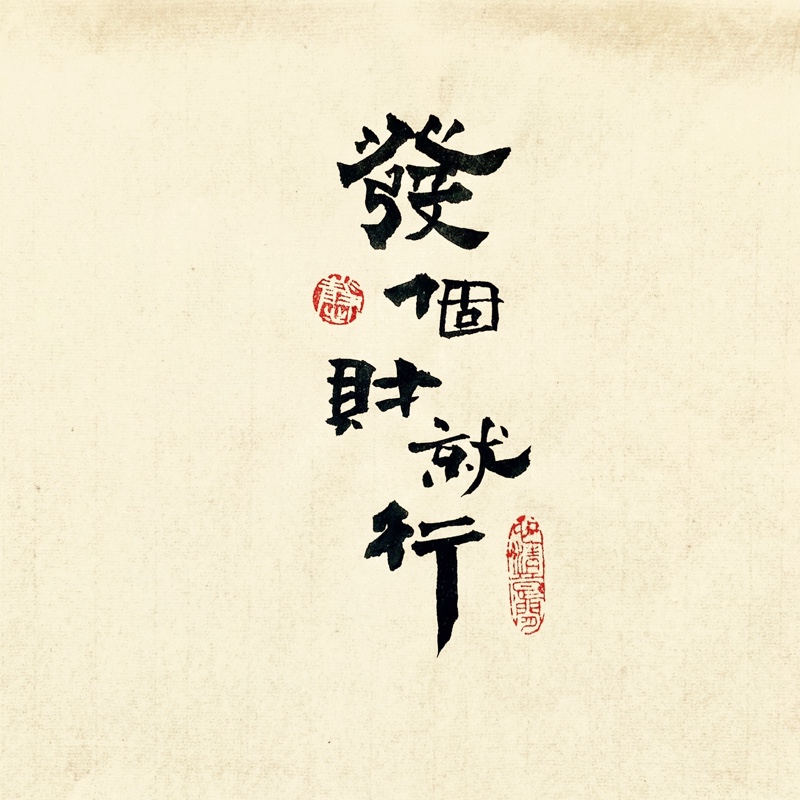 發個財就行